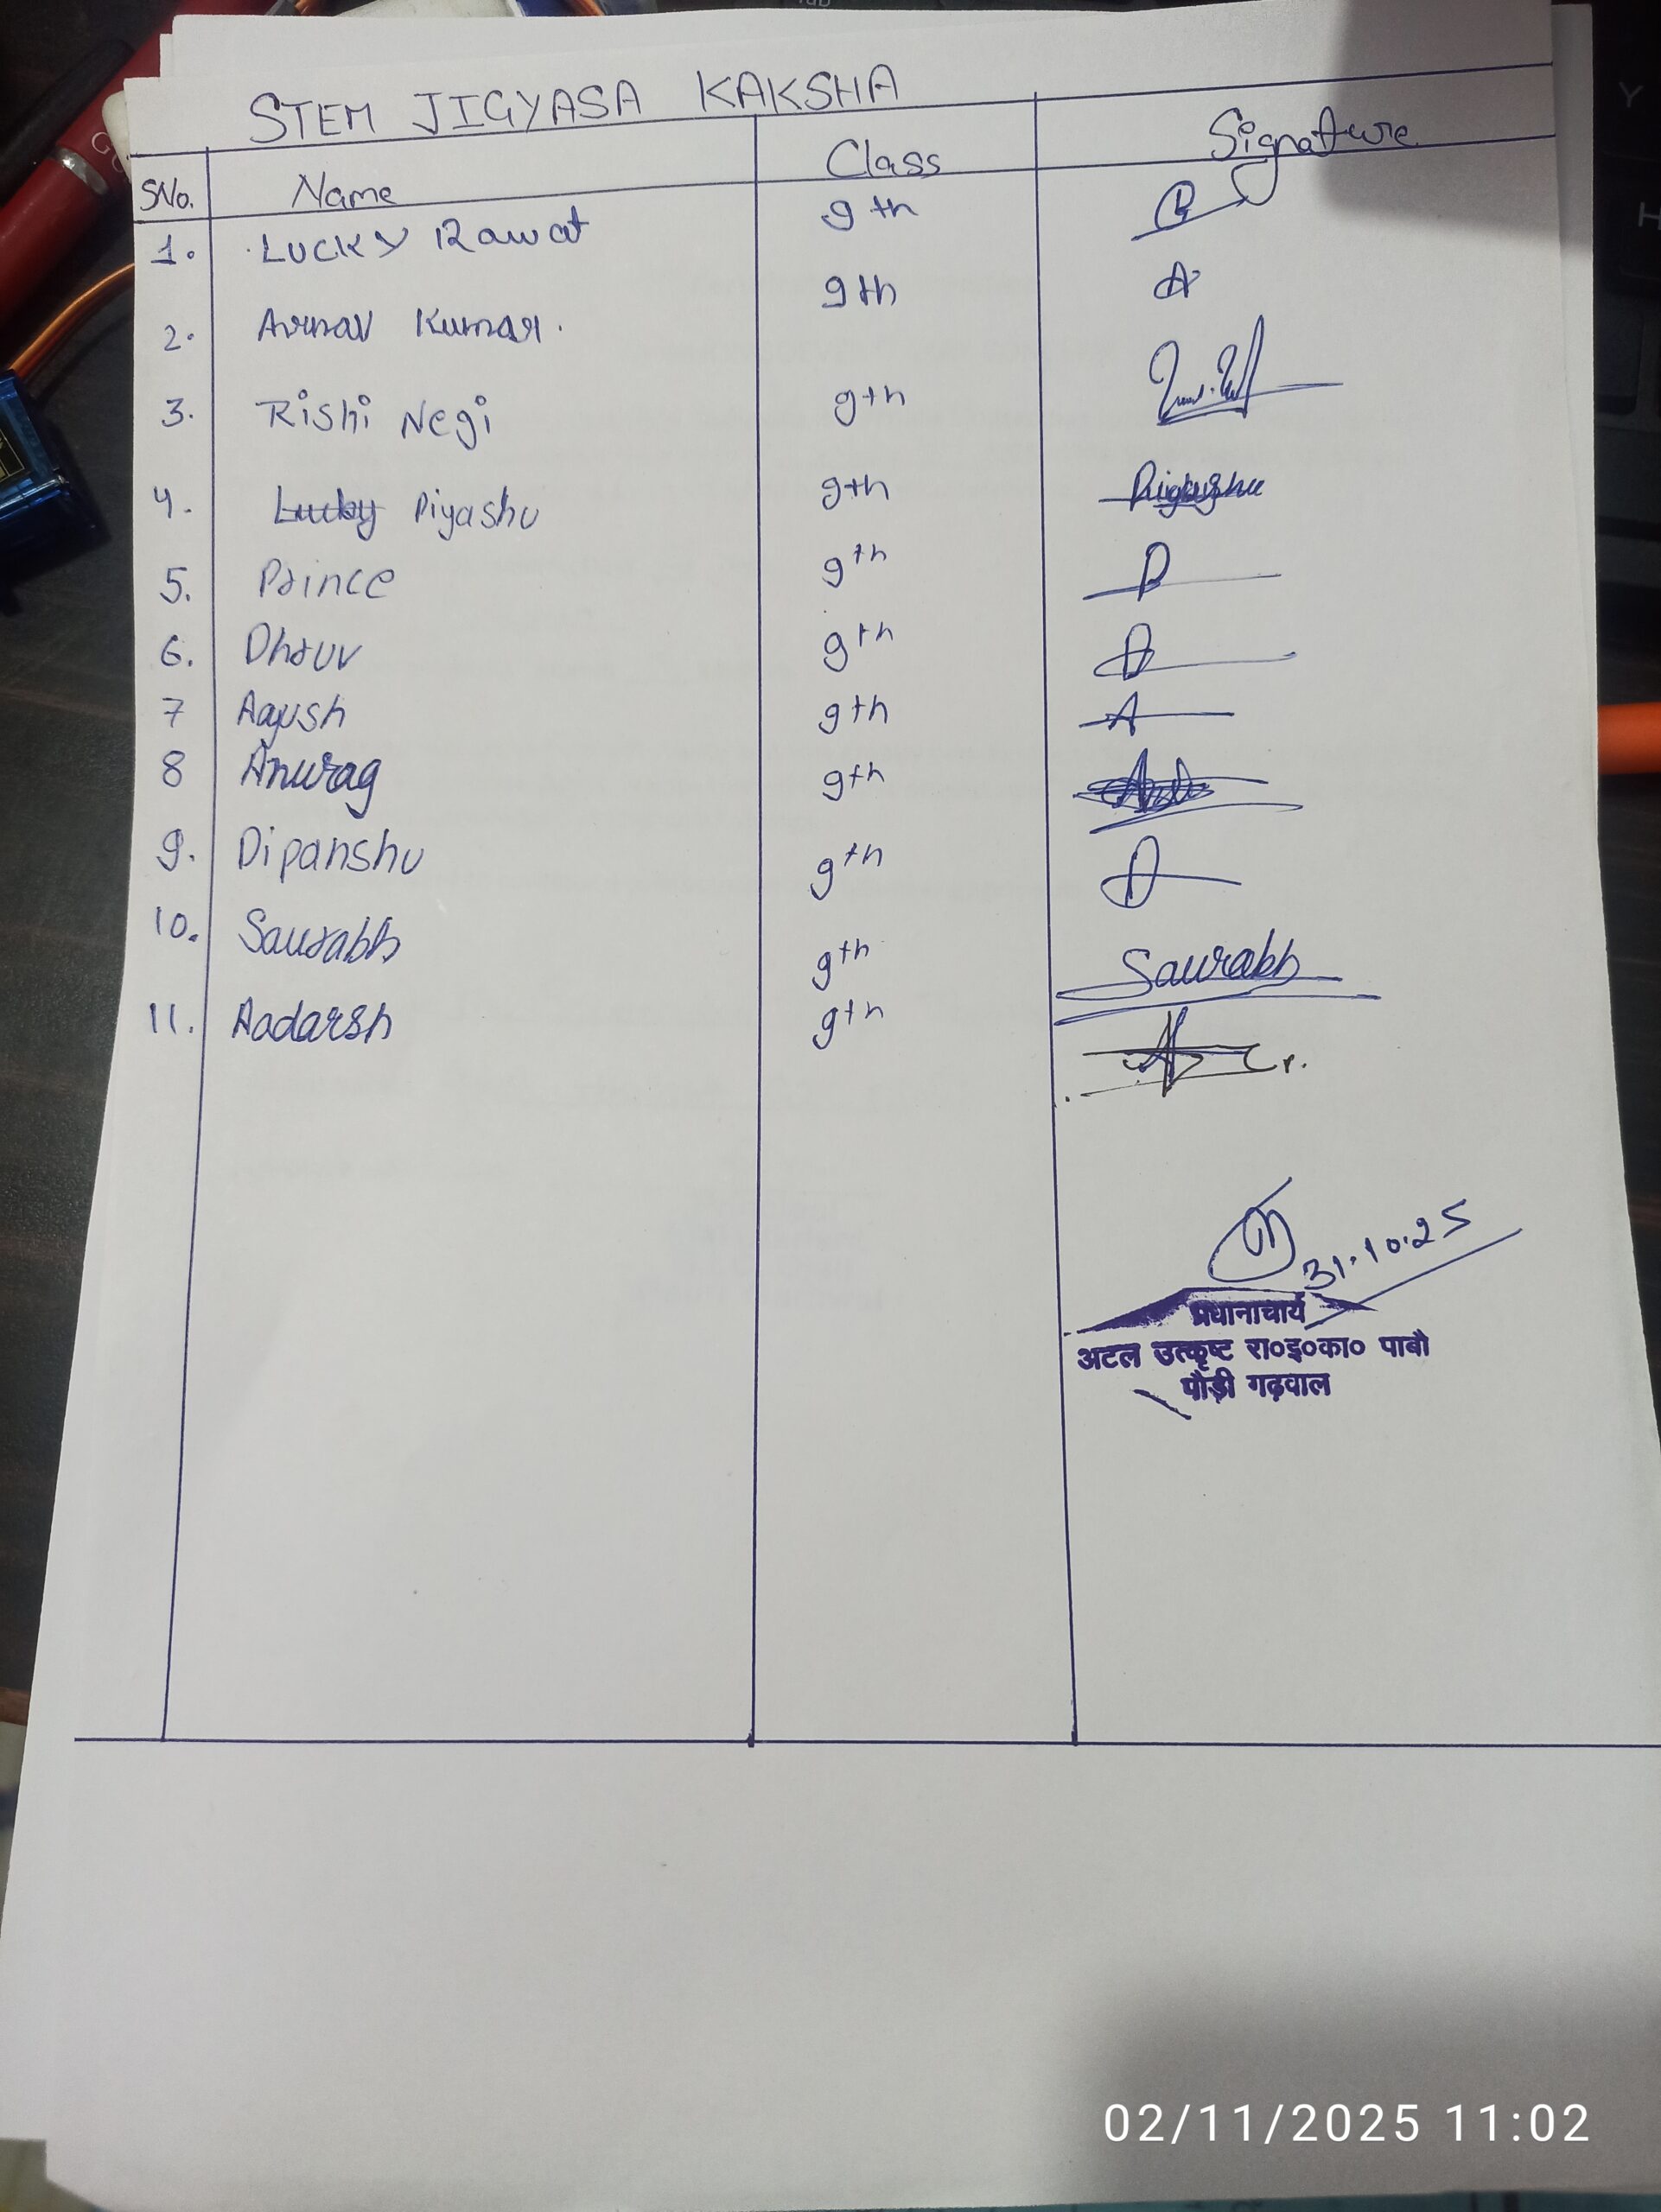 STEM JIGYASA KAKSHA
SNo. Name Class Signature
1. Lucky Rawat 9th
2. Arnav Kumar. 9th A
3. Rishi Negi 9th
4. Lucky Piyashu 9th Piyushu
5. Prince 9th P
6. Dhruv 9th D
7 Aayush 9th A
8 Anurag 9th
9. Dipanshu 9th D
10. Saurabh 9th Saurabh
11. Aadarsh 9th
31.10.25
प्रधानाचार्य
अटल उत्कृष्ट रा०इ०का० पाबौ
पौड़ी गढ़वाल
02/11/2025 11:02